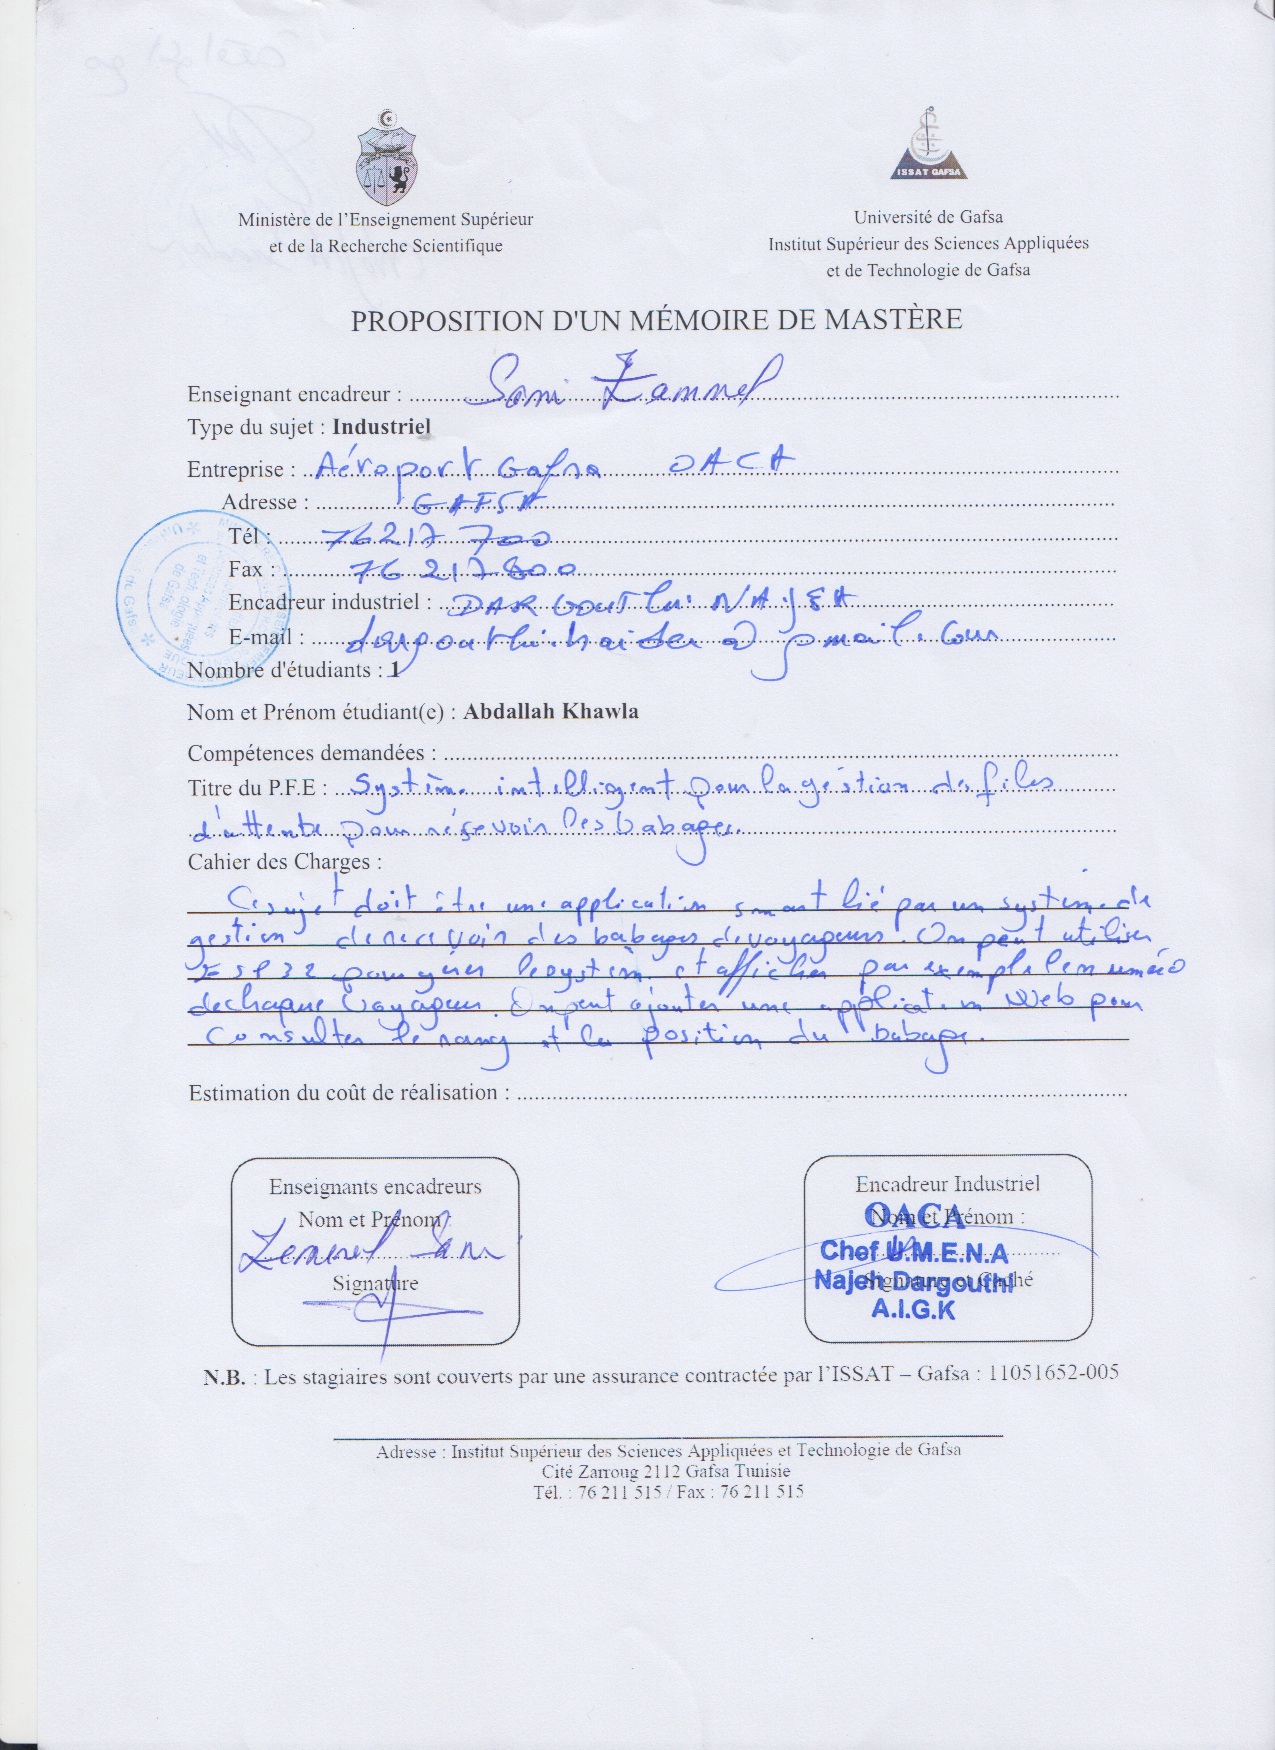 ISSAT GAFSA
Ministère de l'Enseignement Supérieur
et de la Recherche Scientifique
Université de Gafsa
Institut Supérieur des Sciences Appliquées
et de Technologie de Gafsa
PROPOSITION D'UN MÉMOIRE DE MASTÈRE
Enseignant encadreur : Sami Zammel
Type du sujet : Industriel
Entreprise : Aéroport Gafsa OACA
Adresse : GAFSA
Tél : 76 217 700
Fax : 76 217 800
Encadreur industriel : DARGOUTHI NAJEH
E-mail : @ gmail.com
Nombre d'étudiants : 1
Nom et Prénom étudiant(e) : Abdallah Khawla
Compétences demandées :
Titre du P.F.E : Système intelligent pour la géstion des files
d'attente pour résevoir les babages.
Cahier des Charges :
Ce sujet doit être une application smart lié par un système de
gestion de recevoir des babages de voyageurs. On peut utiliser
ESP32 pour gérer le système et afficher par exemple le numéro
de chaque voyageur. On peut ajouter une application Web pour
Consulter le rang et la position du babage.
Estimation du coût de réalisation :
Enseignants encadreurs
Nom et Prénom :
Zemmel Sami
Signature
Encadreur Industriel
Nom et Prénom :
Signature et Caché
OACA
Chef U.M.E.N.A
Najeh Dargouthi
A.I.G.K
N.B. : Les stagiaires sont couverts par une assurance contractée par l'ISSAT – Gafsa : 11051652-005
Adresse : Institut Supérieur des Sciences Appliquées et Technologie de Gafsa
Cité Zarroug 2112 Gafsa Tunisie
Tél. : 76 211 515 / Fax : 76 211 515